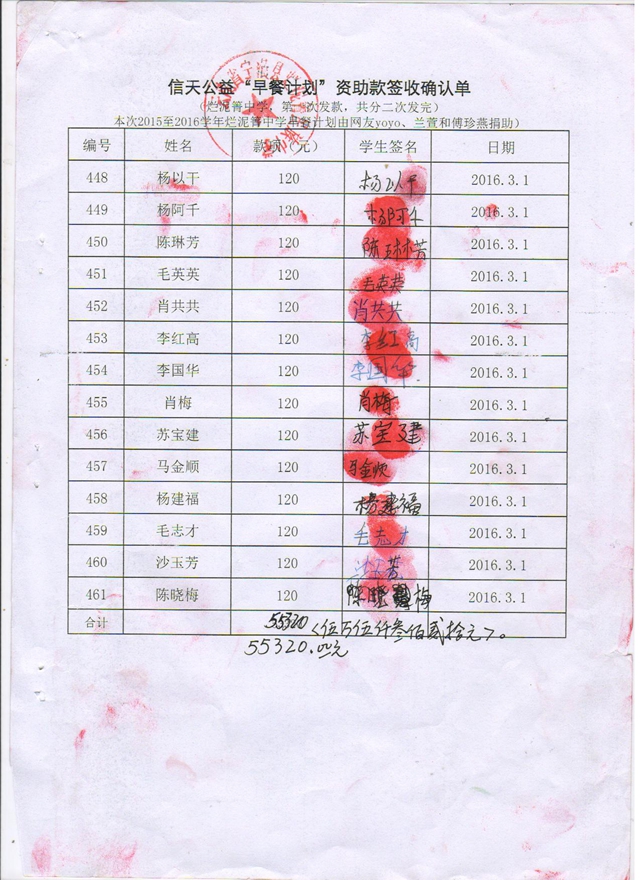 信天公益“早餐计划”资助款签收确认单
（烂泥箐中学，第一次发款，共分二次发完）
本次2015至2016学年烂泥箐中学早餐计划由网友yoyo、兰萱和傅珍燕捐助）
编号 姓名 款项（元） 学生签名 日期
448 杨以干 120 杨以干 2016.3.1
449 杨阿千 120 杨阿千 2016.3.1
450 陈琳芳 120 陈琳芳 2016.3.1
451 毛英英 120 毛英英 2016.3.1
452 肖共共 120 肖共共 2016.3.1
453 李红高 120 李红高 2016.3.1
454 李国华 120 李国华 2016.3.1
455 肖梅 120 肖梅 2016.3.1
456 苏宝建 120 苏宝建 2016.3.1
457 马金顺 120 马金 2016.3.1
458 杨建福 120 杨建福 2016.3.1
459 毛志才 120 毛志才 2016.3.1
460 沙玉芳 120 沙玉芳 2016.3.1
461 陈晓梅 120 陈晓梅 2016.3.1
合计 55320（伍万伍仟叁佰贰拾元）。
55320.00元